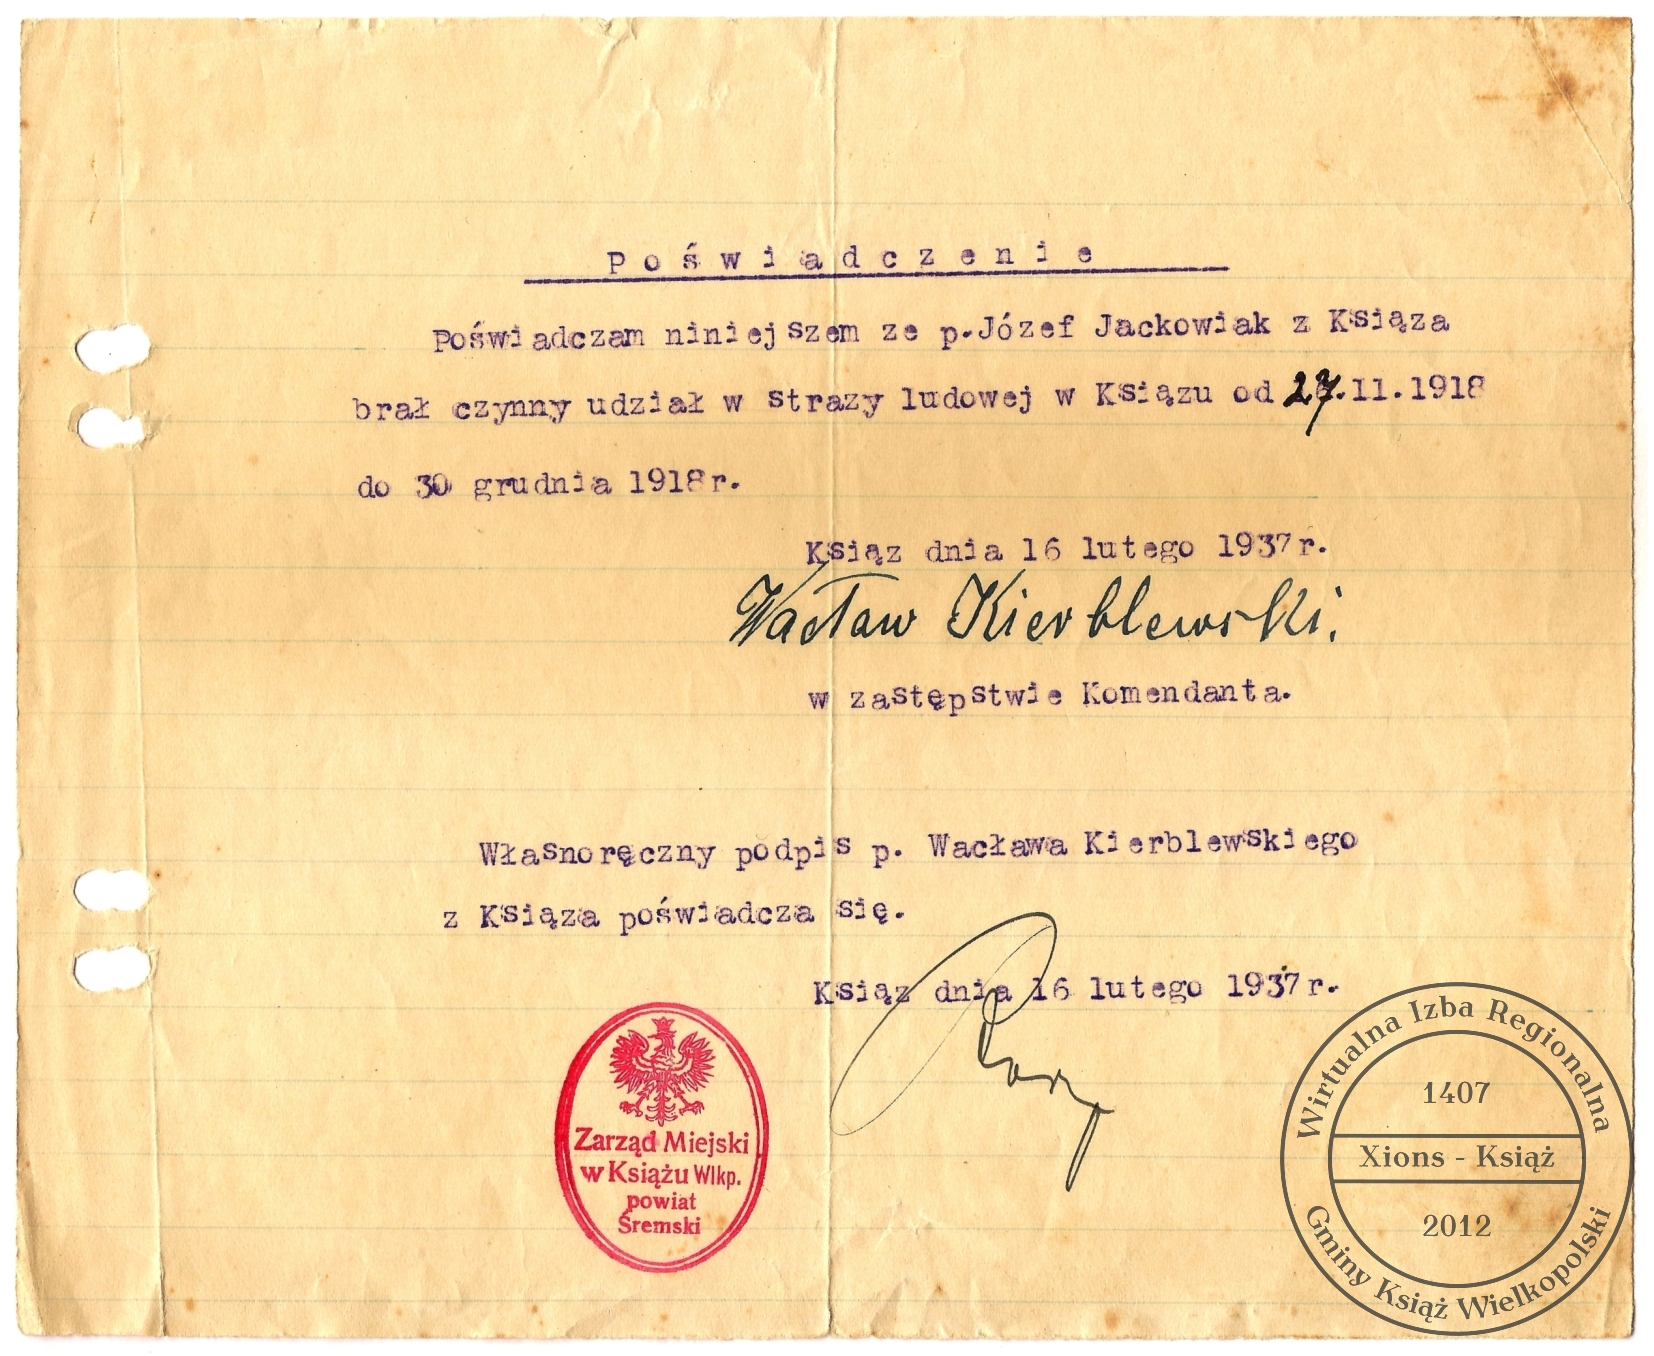 Poświadczenie
Poświadczam niniejszem ze p.Józef Jackowiak z Książa
brał czynny udział w strazy ludowej w Książu od 27.11.1918
do 30 grudnia 1918r.
Ksiąz dnia 16 lutego 1937r.
Wacław Kierblewski.
w zastępstwie Komendanta.
Własnoręczny podpis p. Wacława Kierblewskiego
z Ksiąza poświadcza się.
Ksiąz dnia 16 lutego 1937r.
Zarząd Miejski
w Książu Wlkp.
powiat
Śremski
Wirtualna Izba Regionalna
1407
Xions - Książ
2012
Gminy Książ Wielkopolski